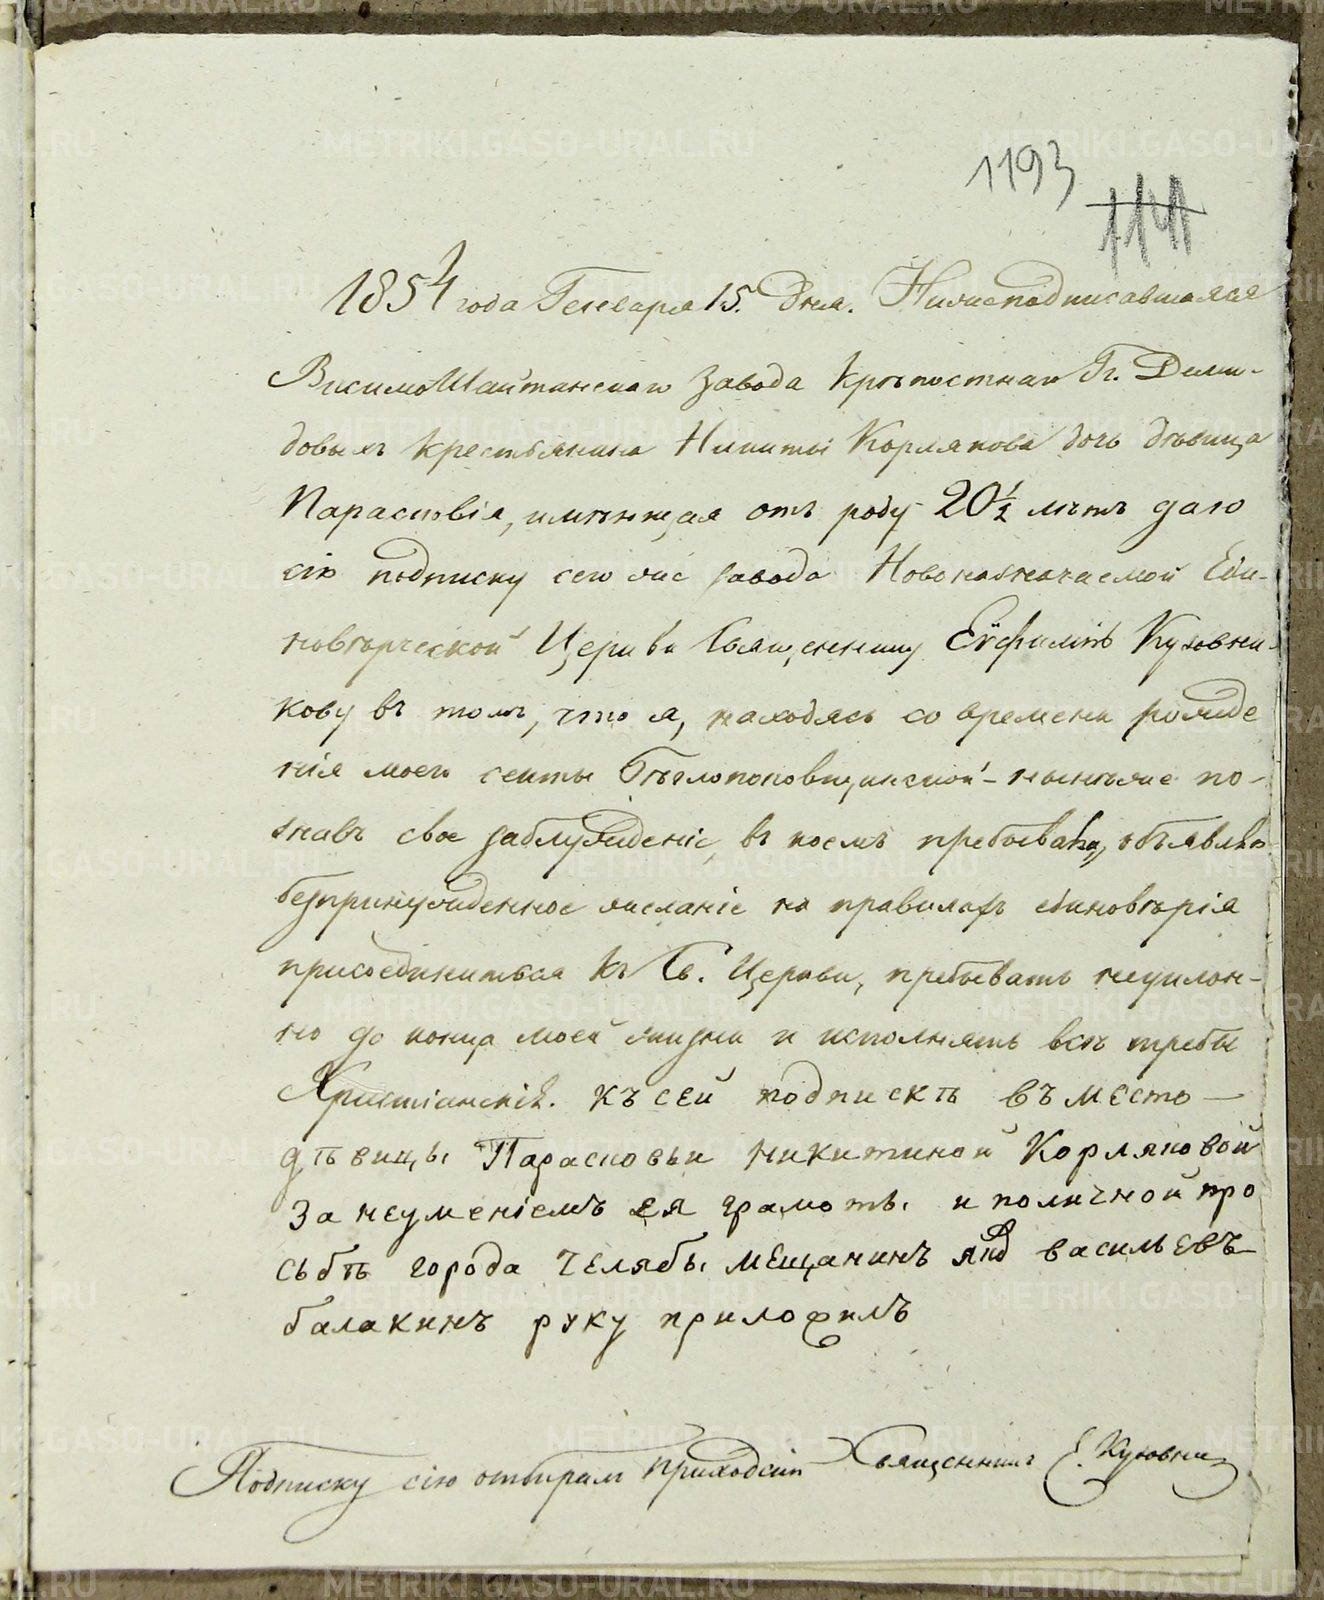 1193
1141
1854 года Генваря 15. дня. Нижеподписавшаяся
ВисимоШайтанскаго завода крѣпостная Гг. Деми-
довыхъ крестьянина Никиты Корлякова дочь дѣвица
Парасковія, имѣющая отъ роду 20½ лѣтъ даю
сію подписку сего же завода Новоназначаемой Еди-
новѣрческой Церкви Священнику Еѵфимію Кузовни-
кову въ томъ, что я, находясь со времени рожде
нія моего секты бѣглопоповщинской - нынѣже по-
знавъ свое заблужденіе, въ коемъ пребывала, объявляю
безпринужденное желаніе на правилахъ единовѣрія
присоединиться къ Св. Церкви, пребывать неуклон-
но до конца моей жизни и исполнять всѣ требы
Христіанскія. къ сей подпискѣ въместо
дѣвицы Парасковьи никитиной Корляковой
За неуменіемъ ея грамотѣ. и поличной про
сьбѣ города челябы мещанинъ васильевъ
балакинъ руку приложилъ
Подписку сію отбиралъ Приходскій Священникъ Е. Кузовник